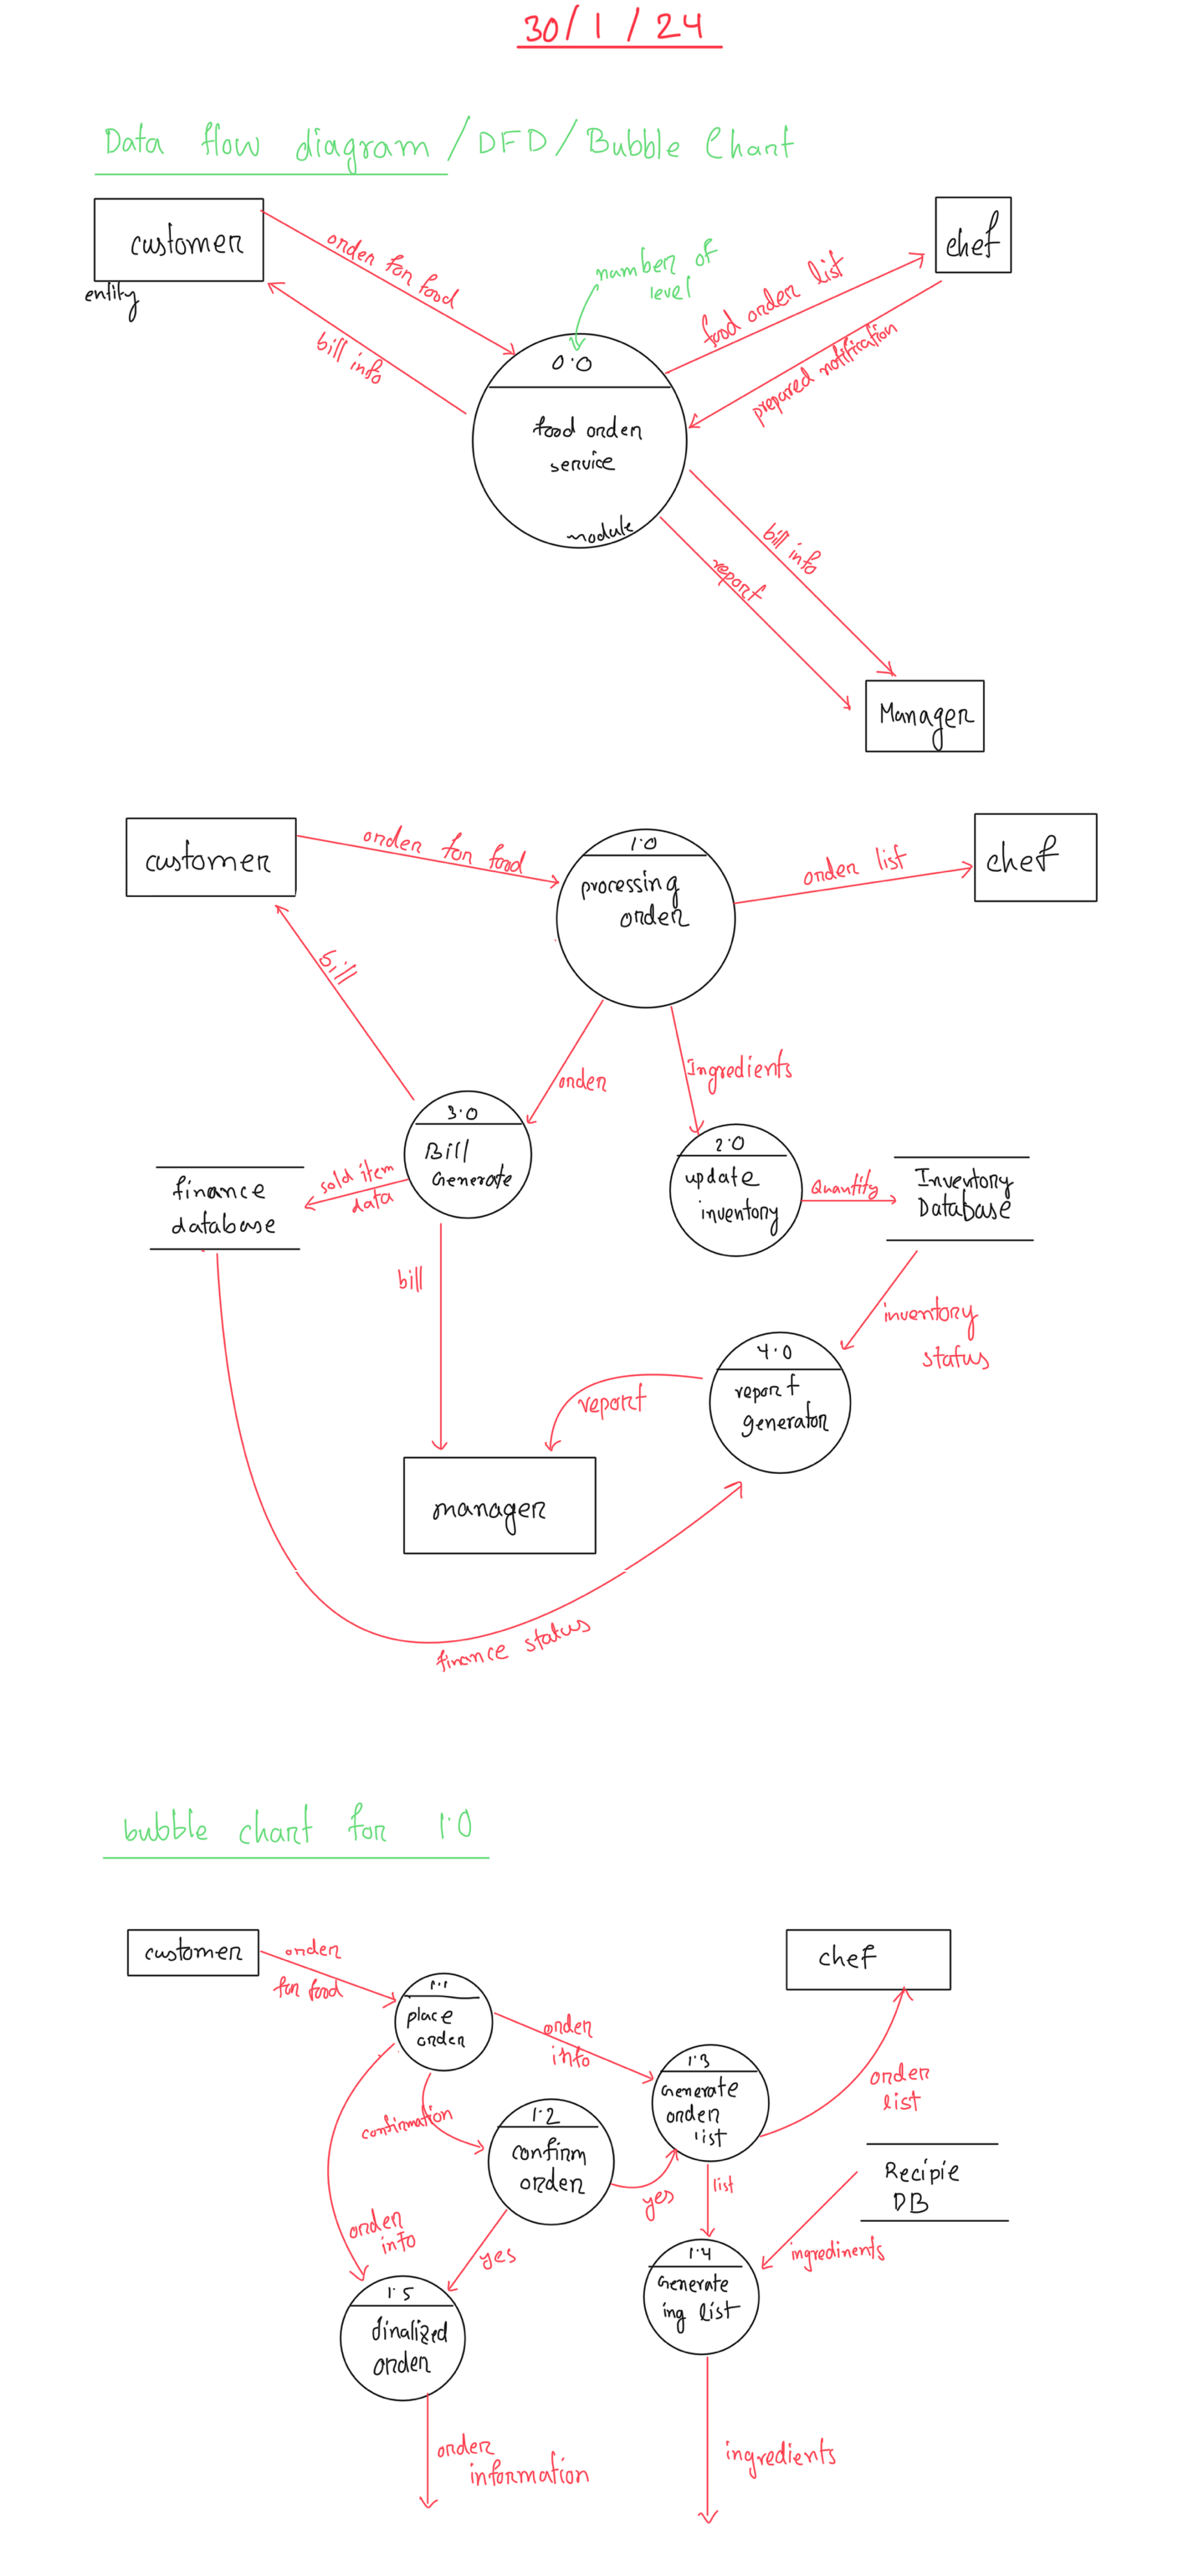 30/1/24
Data flow diagram/DFD/Bubble Chart
customer
entity
order for food
bill info
number of
level
0.0
food order
service
module
food order list
prepared notification
chef
bill info
report
Manager
customer
order for food
1.0
processing
order
order list
chef
bill
order
Ingredients
3.0
Bill
Generate
sold item
data
finance
database
2.0
update
inventory
Quantity
Inventory
Database
bill
inventory
status
4.0
report
generator
report
manager
finance status
bubble chart for 1.0
customer
order
for food
chef
1.1
place
order
order
info
1.3
Generate
order
list
order
list
confirmation
1.2
confirm
order
yes
list
Recipie
DB
order
info
yes
ingredinents
1.4
Generate
ing list
1.5
finalized
order
order
information
ingredients